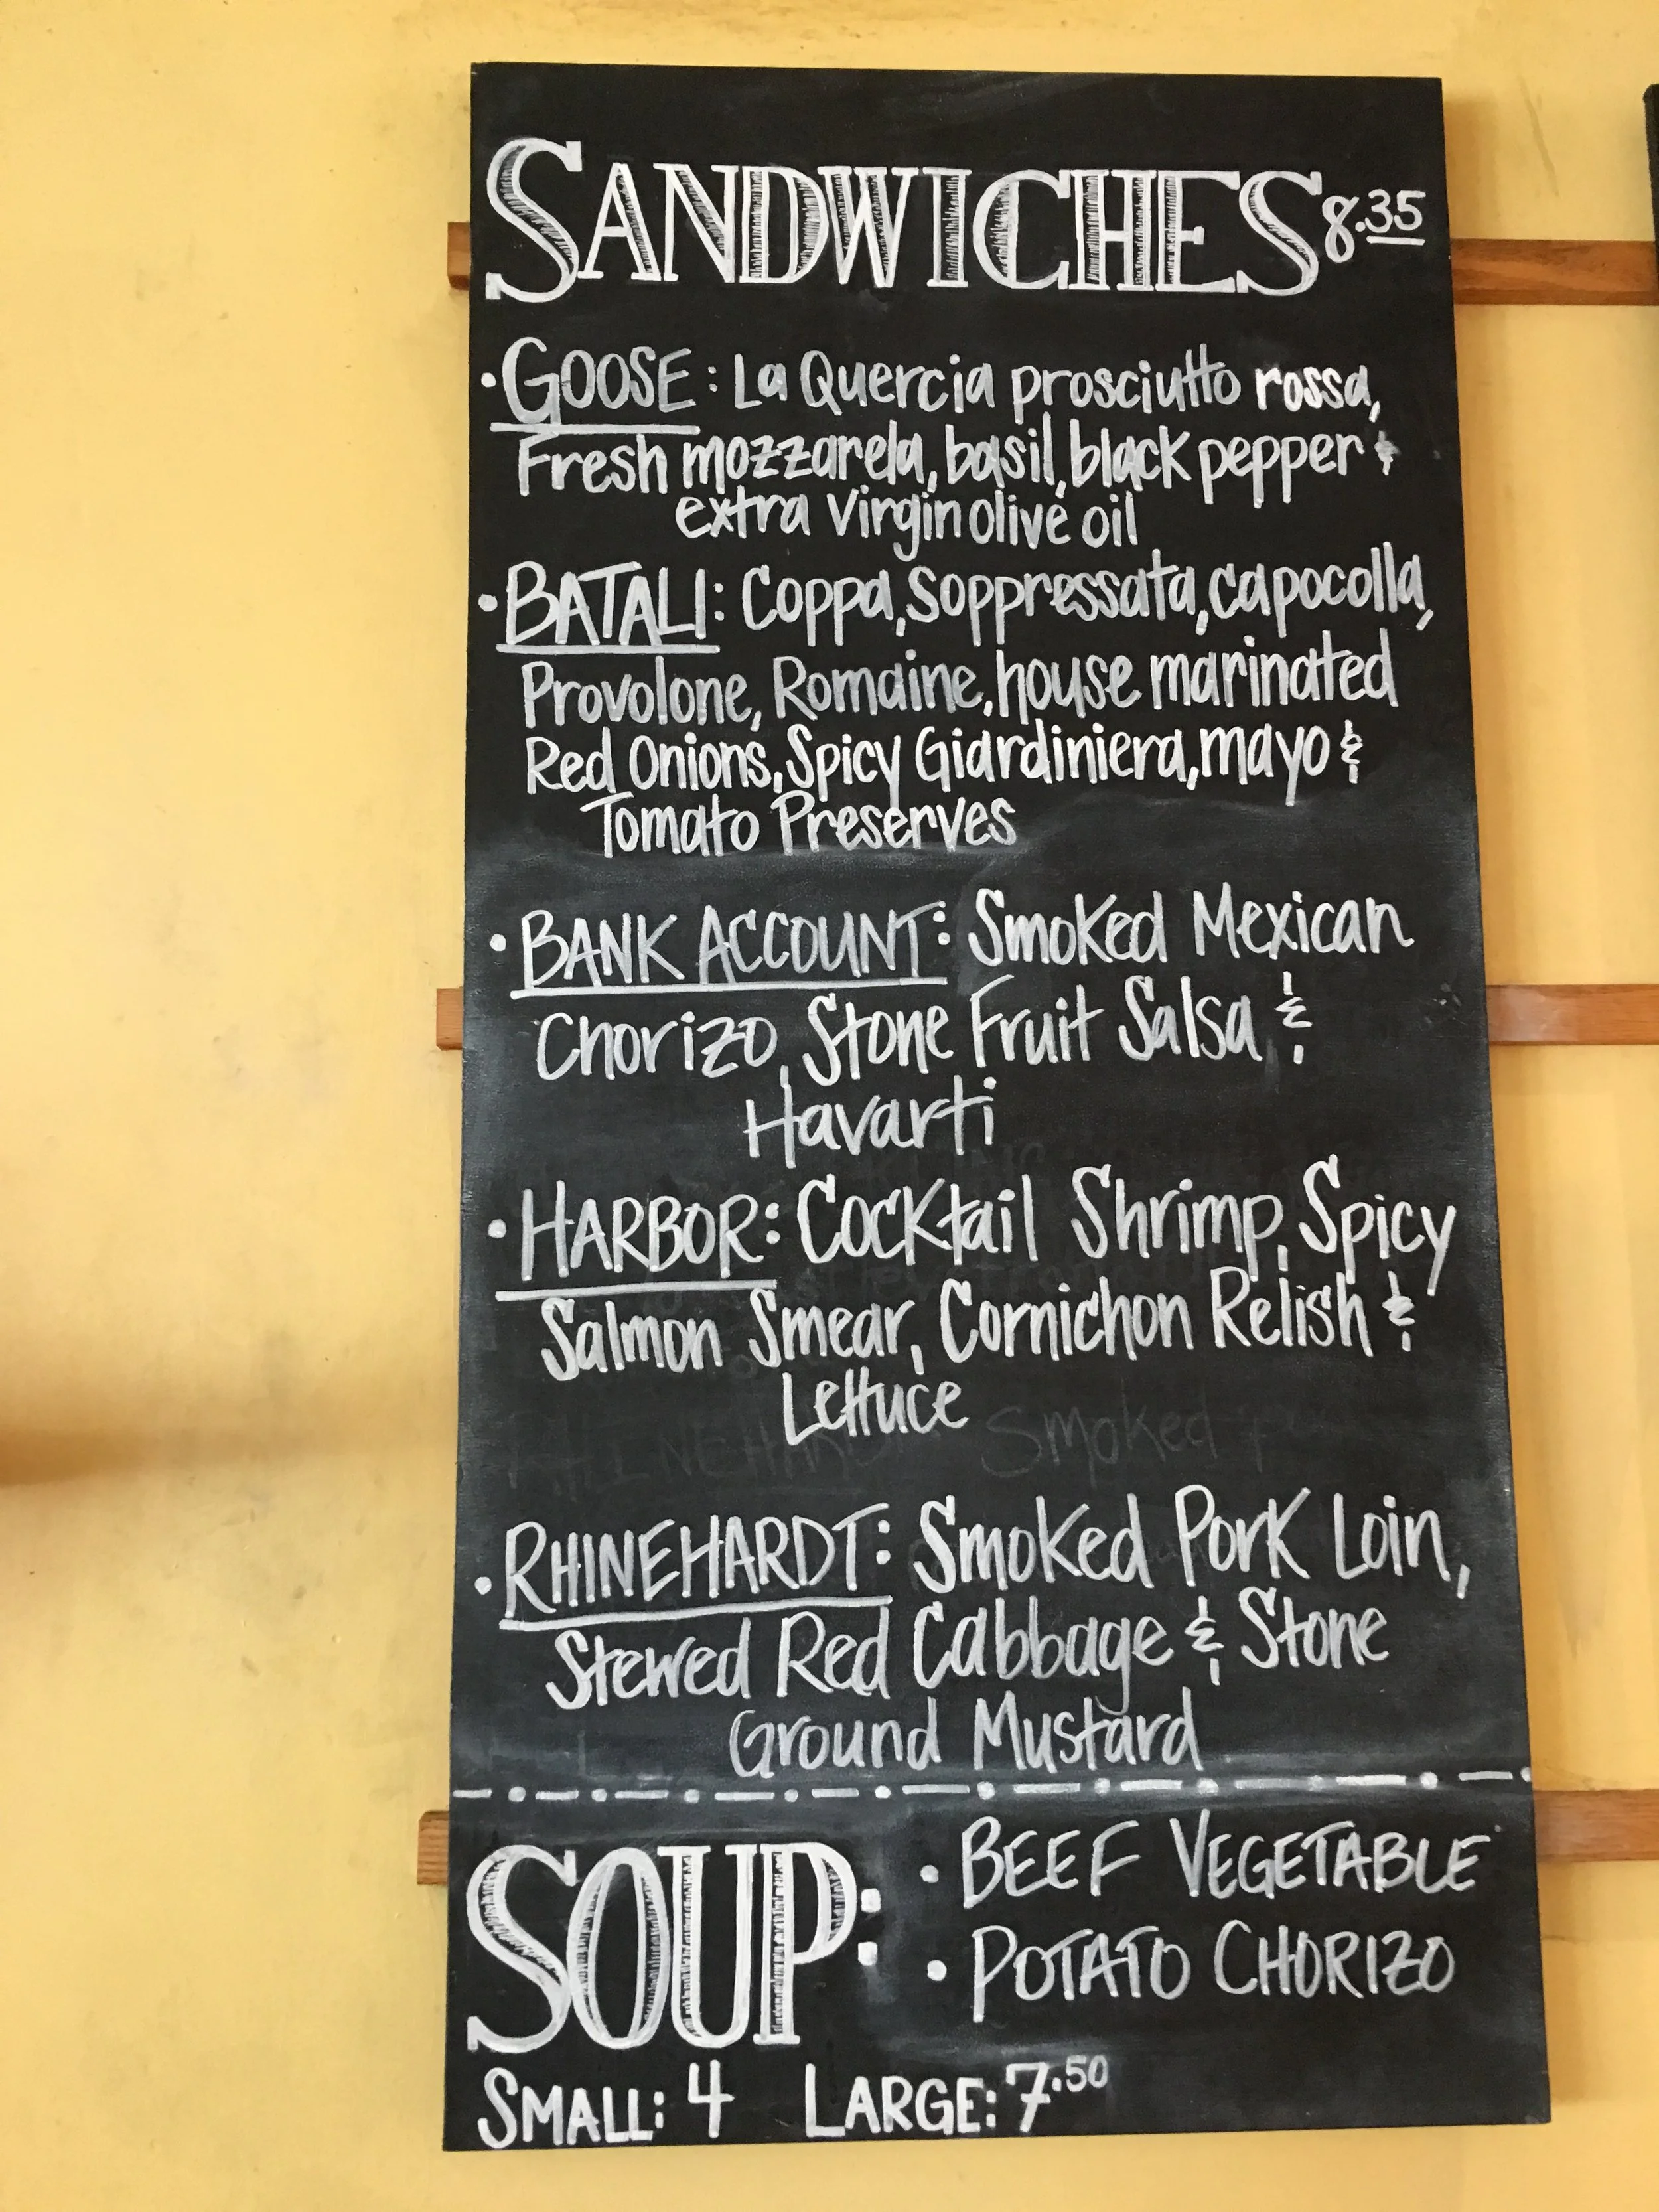 SANDWICHES 8.35
• GOOSE: La Quercia prosciutto rossa,
Fresh mozzarela, basil, black pepper &
extra virgin olive oil
• BATALI: Coppa, Soppressata, capocolla,
Provolone, Romaine, house marinated
Red Onions, Spicy Giardiniera, mayo &
Tomato Preserves
• BANK ACCOUNT: Smoked Mexican
Chorizo, Stone Fruit Salsa &
Havarti
• HARBOR: Cocktail Shrimp, Spicy
Salmon Smear, Cornichon Relish &
Lettuce
• RHINEHARDT: Smoked Pork Loin,
Stewed Red Cabbage & Stone
Ground Mustard
SOUP: • BEEF VEGETABLE
• POTATO CHORIZO
SMALL: 4 LARGE: 7.50